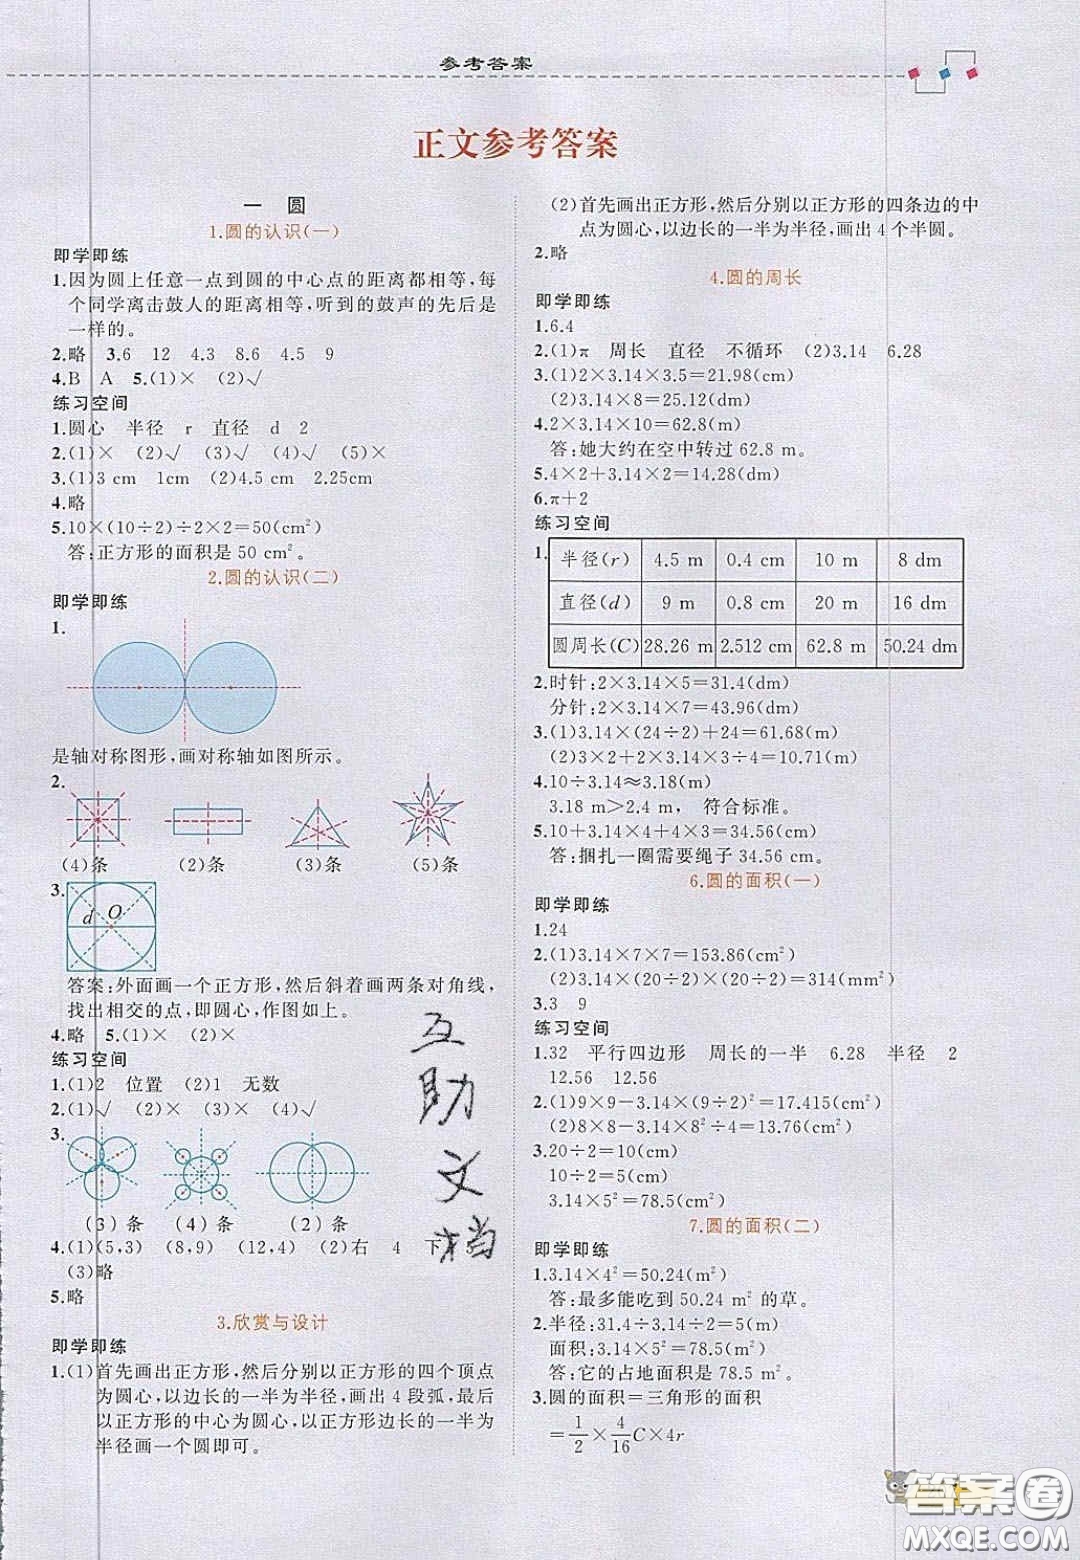 参考答案
正文参考答案
一 圆
1.圆的认识(一)
即学即练
1.因为圆上任意一点到圆的中心点的距离都相等,每
个同学离击鼓人的距离相等,听到的鼓声的先后是
一样的。
2.略 3.6 12 4.3 8.6 4.5 9
4.B A 5.(1)× (2)√
练习空间
1.圆心 半径 r 直径 d 2
2.(1)× (2)√ (3)√ (4)√ (5)×
3.(1)3 cm 1cm (2)4.5 cm 2.25cm
4.略
5.10×(10÷2)÷2×2=50(cm²)
答:正方形的面积是 50 cm²。
2.圆的认识(二)
即学即练
1.
是轴对称图形,画对称轴如图所示。
2.
(4)条 (2)条 (3)条 (5)条
3.
d O
答案:外面画一个正方形,然后斜着画两条对角线,
找出相交的点,即圆心,作图如上。
4.略 5.(1)× (2)×
练习空间
1.(1)2 位置 (2)1 无数
2.(1)√ (2)× (3)× (4)√
3.
(3)条 (4)条 (2)条
4.(1)(5,3) (8,9) (12,4) (2)右 4 下
(3)略
5.略
3.欣赏与设计
即学即练
1.(1)首先画出正方形,然后分别以正方形的四个顶点
为圆心,以边长的一半为半径,画出 4 段弧,最后
以正方形的中心为圆心,以正方形边长的一半为
半径画一个圆即可。
互
助
文
档
(2)首先画出正方形,然后分别以正方形的四条边的中
点为圆心,以边长的一半为半径,画出 4 个半圆。
2.略
4.圆的周长
即学即练
1.6.4
2.(1)π 周长 直径 不循环 (2)3.14 6.28
3.(1)2×3.14×3.5=21.98(cm)
(2)3.14×8=25.12(dm)
4.2×3.14×10=62.8(m)
答:她大约在空中转过 62.8 m。
5.4×2+3.14×4=20.56(m)
6.π+2
练习空间
1.
半径(r) 4.5 m 0.4 cm 10 m 8 dm
直径(d) 9 m 0.8 cm 20 m 16 dm
圆周长(C) 28.26 m 2.512 cm 62.8 m 50.24 dm
2.时针:2×3.14×5=31.4(dm)
分针:2×3.14×7=43.96(dm)
3.(1)3.14×(24÷2)+24=61.68(m)
(2)3×2+2×3.14×3÷4=10.71(m)
4.10÷3.14≈3.18(m)
3.18 m>2.4 m, 符合标准。
5.10+3.14×4+4×3=34.56(cm)
答:捆扎一圈需要绳子 34.56 cm。
6.圆的面积(一)
即学即练
1.24
2.(1)3.14×7×7=153.86(cm²)
(2)3.14×(20÷2)×(20÷2)=314(mm²)
3.3 9
练习空间
1.32 平行四边形 周长的一半 6.28 半径 2
12.56 12.56
2.(1)9×9-3.14×(9÷2)²=17.415(cm²)
(2)8×8-3.14×8²÷4=13.76(cm²)
3.20÷2=10(cm)
10÷2=5(cm)
3.14×5²=78.5(cm²)
7.圆的面积(二)
即学即练
1.3.14×4²=50.24(m²)
答:最多能吃到 50.24 m² 的草。
2.半径:31.4÷3.14÷2=5(m)
面积:3.14×5²=78.5(m²)
答:它的占地面积是 78.5 m²。
3.圆的面积=三角形的面积
=1/2×4/16C×4r
答案圈
MXQE.COM